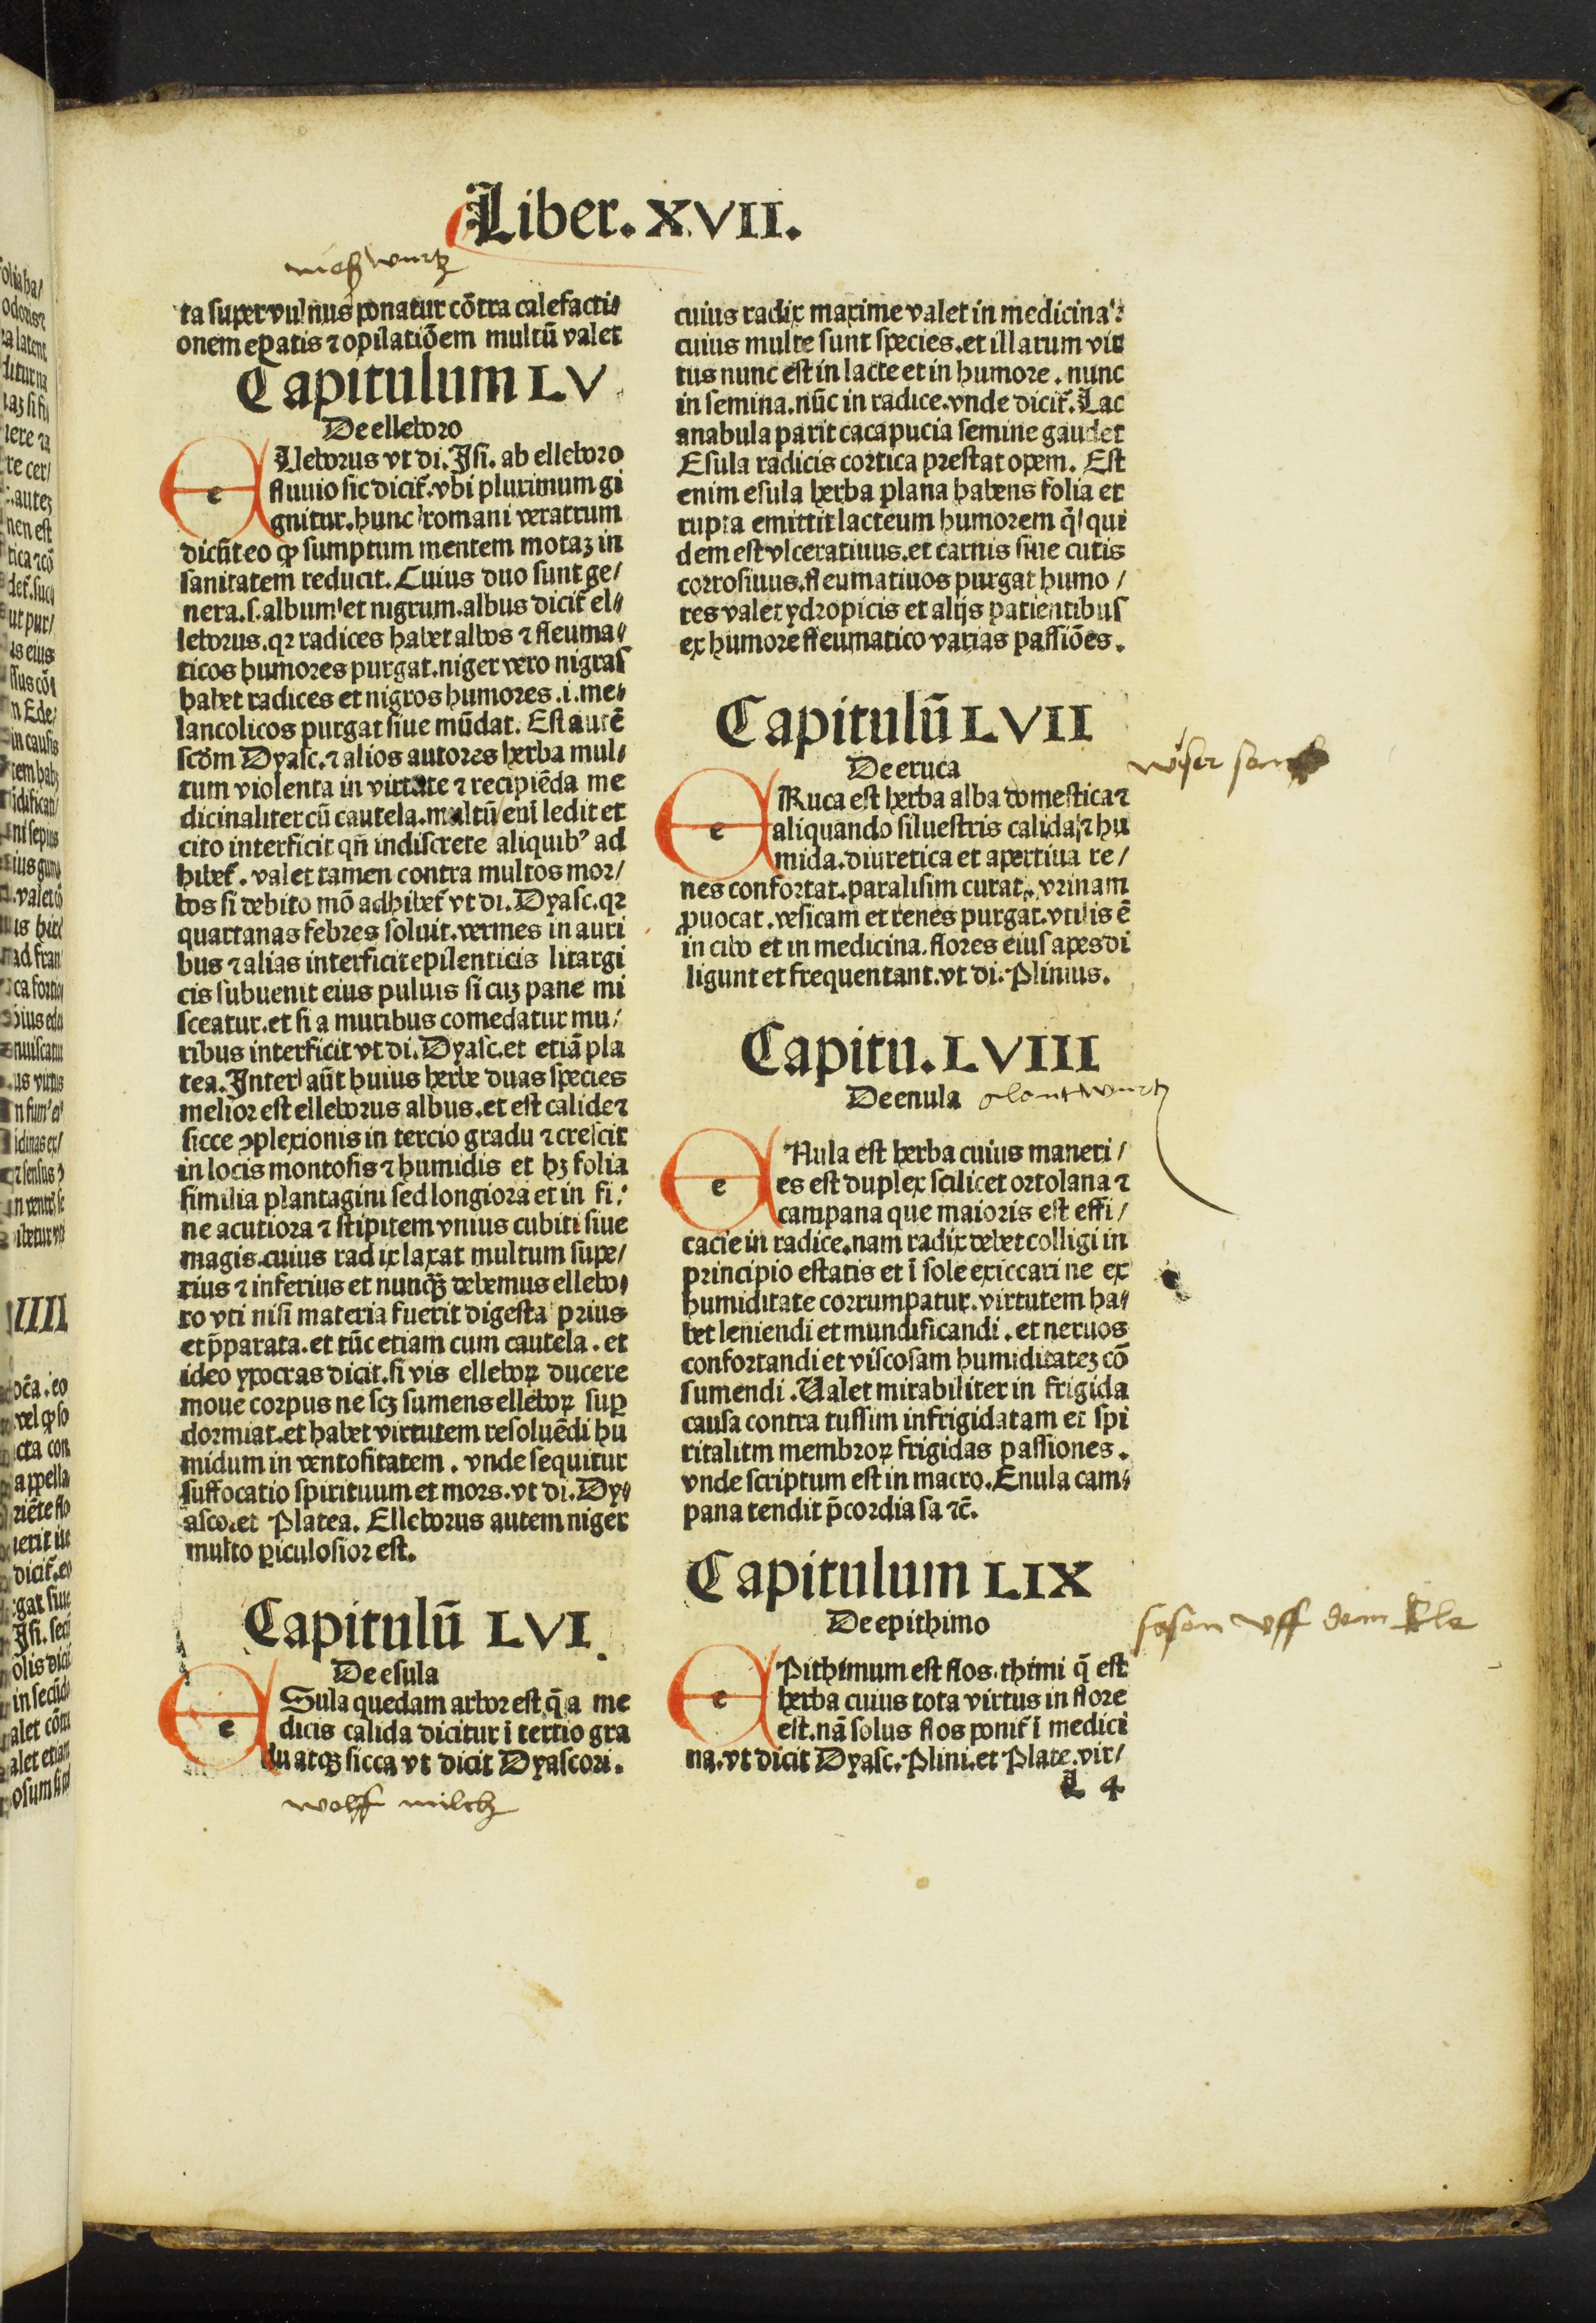 Liber. XVII.
ta super vulnus ponatur cōtra calefacti⸗
onem epatis ⁊ opilatiōem multū valet
Capitulum LV
De elleboro
e Lleborus vt di. Isi. ab elleboro
fluuio sic dicit̃. vbi plurimum gi
gnitur. hunc romani veratrum
dicūt eo ꝙ sumptum mentem motaꝫ in
sanitatem reducit. Cuius duo sunt ge/
nera. s. album et nigrum. albus dicit̃ el⸗
leborus. qꝛ radices habet albos ⁊ fleuma⸗
ticos humores purgat. niger vero nigras
habet radices et nigros humores .i. me⸗
lancolicos purgat siue mūdat. Est autē
scōm Dyasc. ⁊ alios autores herba mul⸗
tum violenta in virtute ⁊ recipiēda me
dicinaliter cū cautela. multū eni ledit et
cito interficit qn̄ indiscrete aliquibꝰ ad
hibet̃. valet tamen contra multos mor/
bos si debito mō adhibet̃ vt di. Dyasc. qꝛ
quartanas febres soluit. vermes in auri
bus ⁊ alias interficit epilenticis litargi
cis subuenit eius puluis si cuꝫ pane mi
sceatur. et si a muribus comedatur mu/
ribus interficit vt di. Dyasc. et etiā pla
tea. Inter aūt huius herbe duas species
melior est elleborus albus. et est calide ⁊
sicce ꝯplexionis in tercio gradu ⁊ crescit
in locis montosis ⁊ humidis et hꝫ folia
similia plantagini sed longiora et in fi⸗
ne acutiora ⁊ stipitem vnius cubiti siue
magis. cuius radix laxat multum supe/
rius ⁊ inferius et nunqꝫ debemus ellebo⸗
ro vti nisi materia fuerit digesta prius
et p̄parata. et tūc etiam cum cautela. et
ideo ypocras dicit. si vis elleboꝝ ducere
moue corpus ne scꝫ sumens elleboꝝ suꝑ
dormiat. et habet virtutem resoluēdi hu
midum in ventositatem. vnde sequitur
suffocatio spirituum et mors. vt di. Dy⸗
asco. et Platea. Elleborus autem niger
multo ꝑiculosior est.
Capitulū LVI.
De esula
e Sula quedam arbor est q̄ a me
dicis calida dicitur ī tertio gra
du atqꝫ sicca vt dicit Dyascori.
wolff milch
cuius radix maxime valet in medicina:
cuius multe sunt species. et illarum vir
tus nunc est in lacte et in humore. nunc
in semina. nūc in radice. vnde dicit̃. Lac
anabula parit cacapucia semine gaudet
Esula radicis cortica prestat opem. Est
enim esula herba plana habens folia et
rupta emittit lacteum humorem q̄ qui
dem est vlceratiuus. et carnis siue cutis
corrosiuus. fleumatiuos purgat humo/
res valet ydropicis et alijs patientibus
ex humore fleumatico varias passiōes.
Capitulū LVII
De eruca
e Ruca est herba alba domestica ⁊
aliquando siluestris calida ⁊ hu
mida. diuretica et apertiua re/
nes confortat. paralisim curat. vrinam
ꝓuocat. vesicam et renes purgat. vtilis ē
in cibo et in medicina. flores eius apes di
ligunt et frequentant. vt di. Plinius.
Capitu. LVIII
De enula olantwurtz
e Nula est herba cuius maneri/
es est duplex scilicet ortolana ⁊
campana que maioris est effi/
cacie in radice. nam radix debet colligi in
principio estatis et ī sole exiccari ne ex
humiditate corrumpatur. virtutem ha⸗
bet leniendi et mundificandi. et neruos
confortandi et viscosam humiditateꝫ cō
sumendi. Valet mirabiliter in frigida
causa contra tussim infrigidatam et spi
ritalitm membroꝝ frigidas passiones.
vnde scriptum est in macro. Enula cam⸗
pana tendit p̄cordia sa ⁊c̄.
Capitulum LIX
De epithimo
e Pithimum est flos. thimi q̄ est
herba cuius tota virtus in flore
est. nā solus flos ponit̃ ī medici
na. vt dicit Dyasc. Plini. et Plate. vir/
L 4